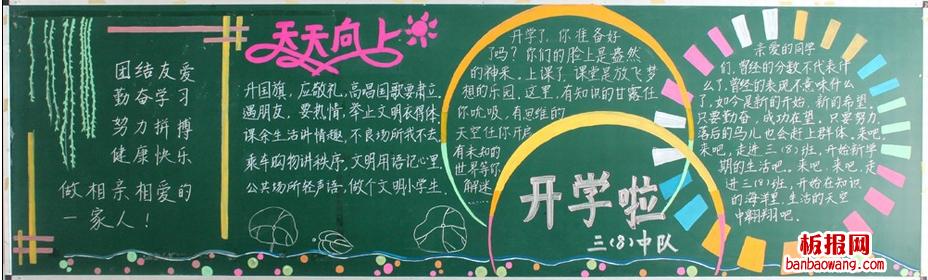 团结友爱
勤奋学习
努力拼搏
健康快乐
做相亲相爱的
一家人！
天天向上
升国旗，应敬礼，高唱国歌要肃立。
遇朋友，要热情，举止文明衣得体。
课余生活讲情趣，不良场所我不去。
乘车购物讲秩序，文明用语记心里
公共场所轻声语，做个文明小学生。
开学了，你准备好
了吗？你们的脸上是盎然
的神采，上课了，课堂是放飞梦
想的乐园，这里，有知识的甘露任
你吮吸，有思维的
天空任你开启
有未知的
世界等你
解迷
开学啦
三(8)中队
亲爱的同学
们，曾经的分数不代表什
么了，曾经的表现不意味什么
了，如今是新的开始，新的希望。
只要勤奋，成功在望。只要努力，
落后的鸟儿也会赶上群体。来吧，
来吧，走进三(8)班，开始新学
期的生活吧。来吧，来吧，走
进三(8)班，开始在知识
的海洋里，生活的天空
中翱翔吧。
板报网
banbaowang.com